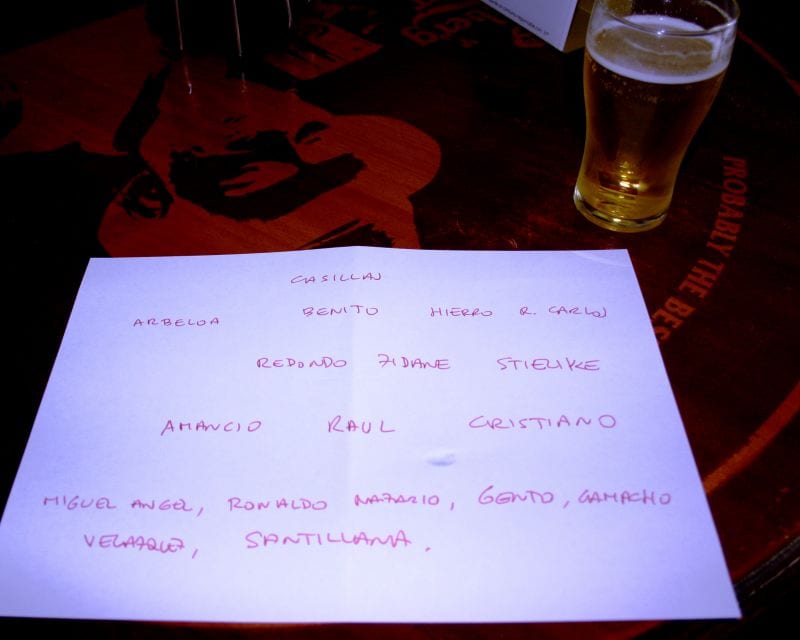 CASILLAS
ARBELOA BENITO HIERRO R. CARLOS
REDONDO ZIDANE STIELIKE
AMANCIO RAUL CRISTIANO
MIGUEL ANGEL, RONALDO NAZARIO, GENTO, CAMACHO
VELAZQUEZ, SANTILLANA.
PROBABLY THE BES